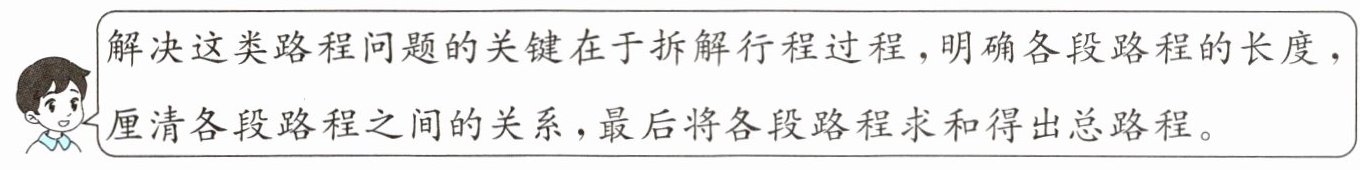 解决这类路程问题的关键在于拆解行程过程,明确各段路程的长度,
厘清各段路程之间的关系,最后将各段路程求和得出总路程。